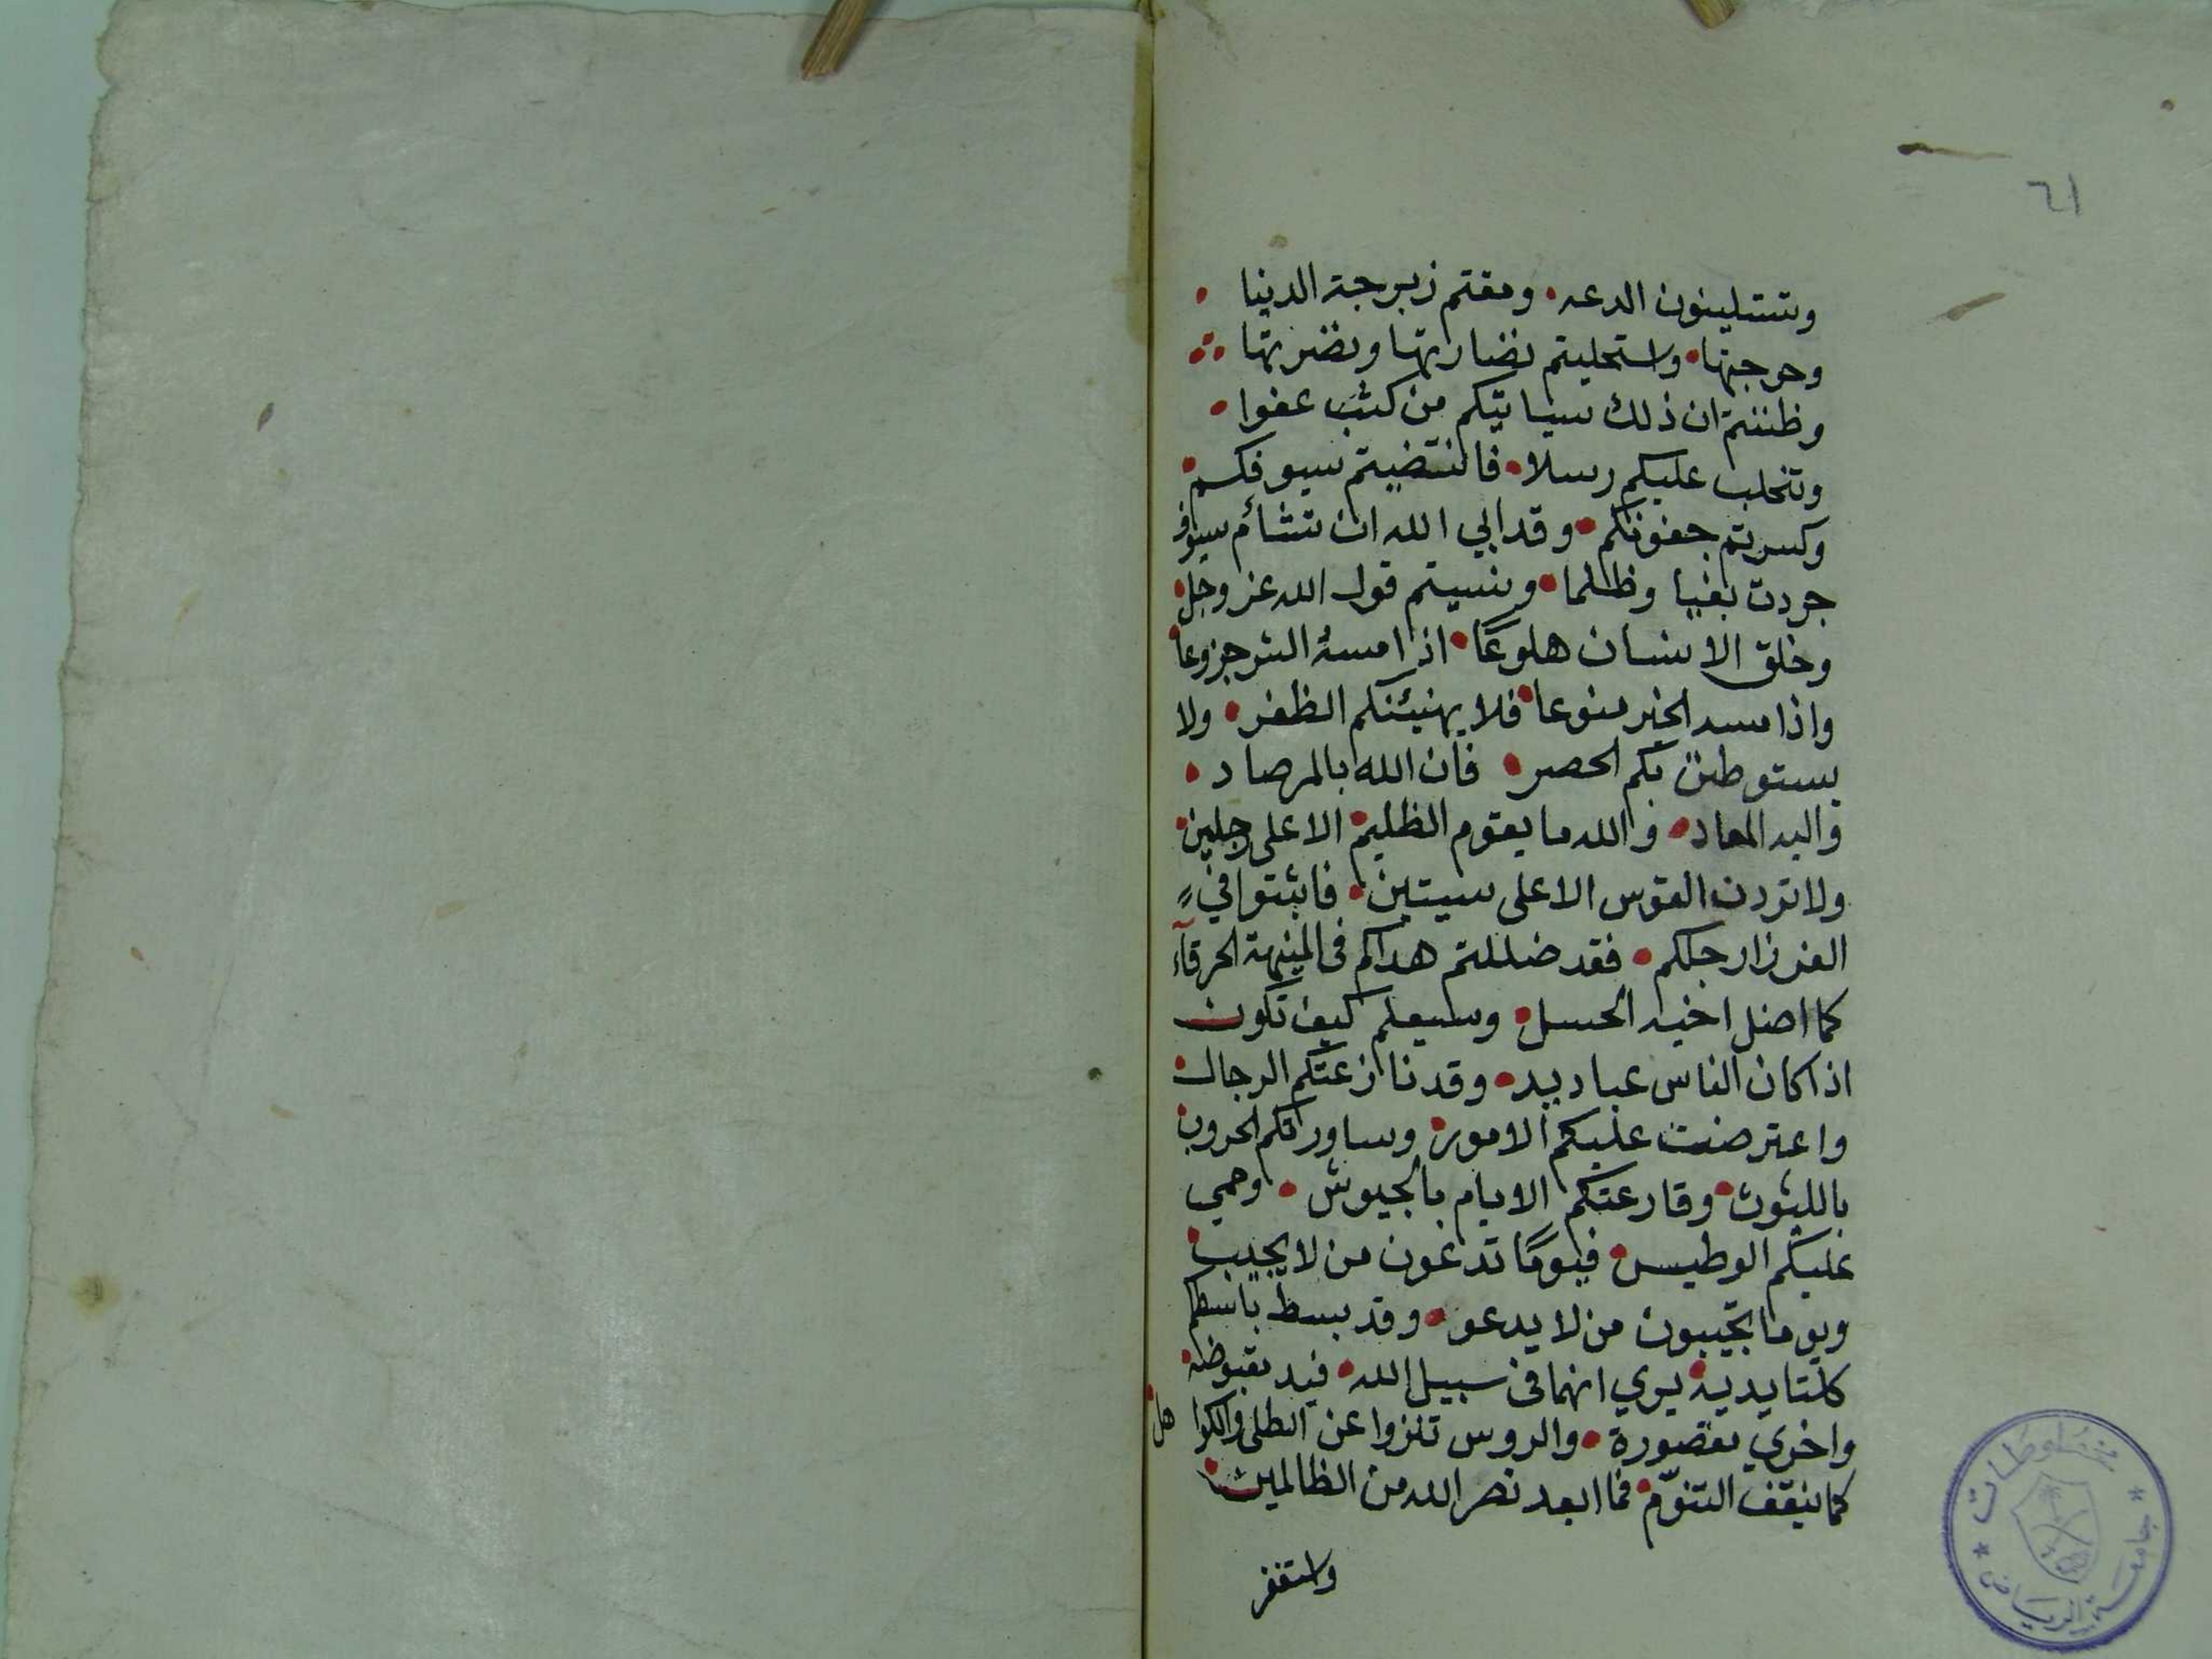 ٦١
وتستلينون الدعه • ومقتم زبرجة الدنيا •
وحرجتها • واستحليتم نضارتها ونضرتها
وظننتم ان ذلك سياتيكم من كثب عفوا •
وتتحلب عليكم رسلا • فانتضيتم سيوفكم •
وكسرتم جفونكم • وقد ابي الله ان تشأم سيوف
جردت بغيا وظلما • ونسيتم قول الله عز وجل •
وخلق الانسان هلوعًا • اذا مسه الشر جزوعا •
واذا مسه الخير منوعا • فلا يهنيئنكم الظفر • ولا
يستوطنن بكم الحصر • فان الله بالمرصاد •
واليه المعاد • والله ما يقوم الظليم الا على رجلين •
ولا تردن القوس الا على سيتين • فاثبتوا في
الغرز ارجلكم • فقد ضللتم هداكم في المنيهة الخرقآء
كما اضل اخيه الحسل • وسيعلم كيف تكون
اذا كان الناس عباديد • وقد نازعتكم الرجال •
واعترضت عليكم الامور • وساورتكم الحروب •
بالليوث • وقارعتكم الايام بالجيوش • وحمي
عليكم الوطيس • فيومًا تدعون من لا يجيب •
ويوما تجيبون من لا يدعو • وقد بسط باسطكم
كلتا يديه يري انهما في سبيل الله • فيد مقبوضة •
واخري مقصورة • والروس تنزوا عن الطلى والكوا هل •
كما ينقف التنوّم • فما ابعد نصر الله من الظالمين •
واستغفر
جامعة الرياض